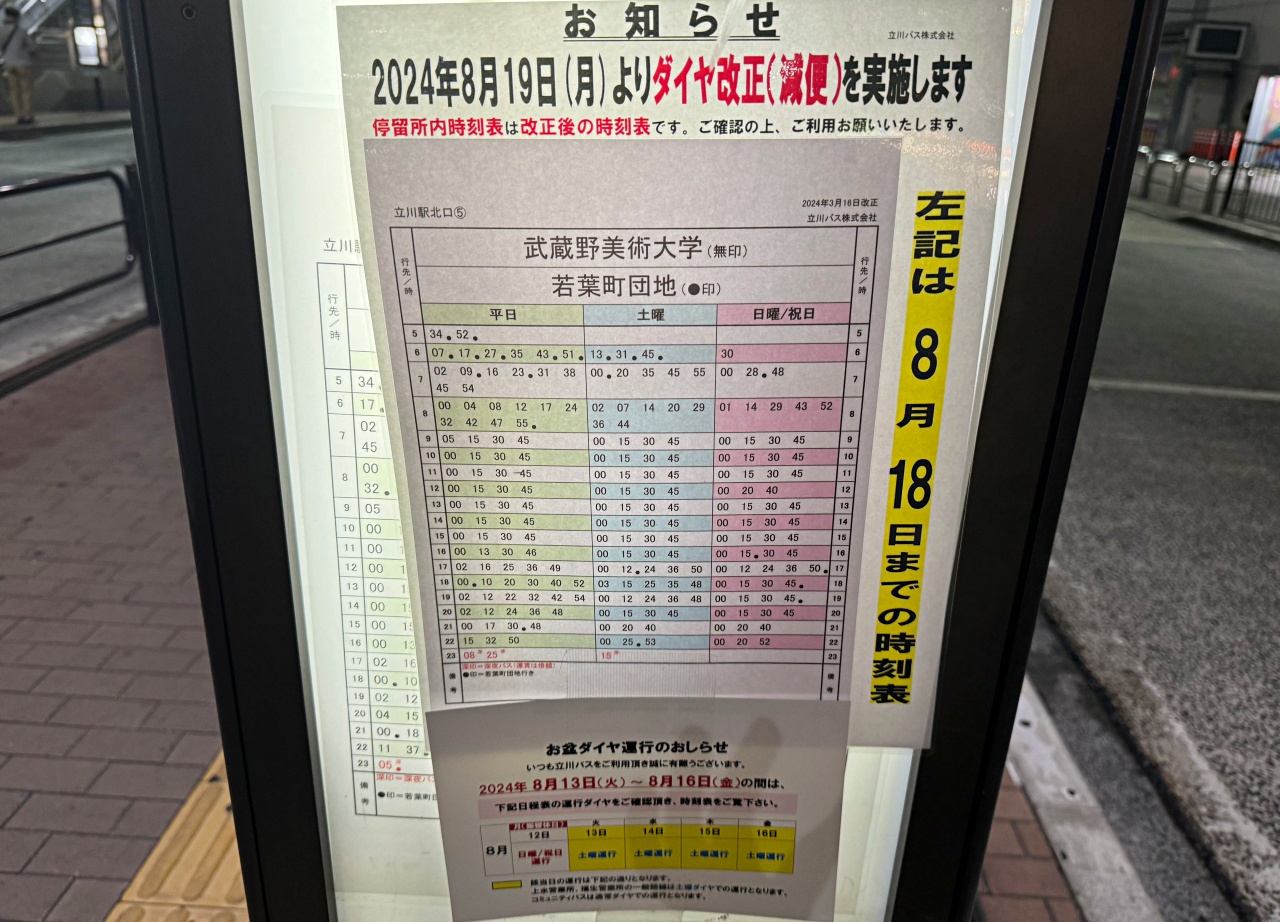 お知らせ
立川バス株式会社
2024年8月19日(月)よりダイヤ改正(減便)を実施します
停留所内時刻表は改正後の時刻表です。ご確認の上、ご利用お願いいたします。
立川駅北口⑤
2024年3月16日改正
立川バス株式会社
行先/時 武蔵野美術大学(無印) 行先/時
若葉町団地(●印)
平日 土曜 日曜/祝日
5 34● 52● 5
6 07● 17● 27● 35 43● 51● 13● 31● 45● 30 6
7 02 09● 16 23● 31 38 00● 20 35 45 55 00 28● 48 7
45 54
8 00 04 08 12 17 24 02 07 14 20 29 01 14 29 43 52 8
32 42 47 55● 36 44
9 05 15 30 45 00 15 30 45 00 15 30 45 9
10 00 15 30 45 00 15 30 45 00 15 30 45 10
11 00 15 30 45 00 15 30 45 00 15 30 45 11
12 00 15 30 45 00 15 30 45 00 20 40 12
13 00 15 30 45 00 15 30 45 00 15 30 45 13
14 00 15 30 45 00 15 30 45 00 15 30 45 14
15 00 15 30 45 00 15 30 45 00 15 30 45 15
16 00 13 30 46 00 15 30 45 00 15● 30 45 16
17 02 16 25 36 49 00 12● 24 36 50 00 12 24 36 50● 17
18 00● 10 20 30 40 52 03 15 25 35 48 00 15 30 45● 18
19 02 12 22 32 42 54 00 12 24 36 48 00 15 30 45● 19
20 02 12 24 36 48 00 15 30 45 00 15 30 45 20
21 00 17 30● 48 00 20 40 00 20 40 21
22 15 32 50 00 25● 53 00 20 52 22
23 08深 25深 15深 23
備考 深印=深夜バス(運賃は倍額) 備考
●印=若葉町団地行き
左記は8月18日までの時刻表
立川
行先/時
5 34
6 17●
7 02
45
8 00
32●
9 05
10 00
11 00
12 00
13 00
14 00
15 00
16 00 13
17 02 16
18 00● 10
19 02 12
20 04 15
21 00● 18
22 11 37●
23 05
備考 深印=深夜バス
●印=若葉町団
お盆ダイヤ運行のおしらせ
いつも立川バスをご利用頂き誠に有難うございます。
2024年 8月13日(火)～8月16日(金)の間は、
下記日程表の運行ダイヤをご確認頂き、時刻表をご覧下さい。
月(振替休日) 火 水 木 金
8月 12日 13日 14日 15日 16日
日曜/祝日運行 土曜運行 土曜運行 土曜運行 土曜運行
該当日の運行は下記の通りとなります。
上水営業所、福生営業所の一般路線は土曜ダイヤでの運行となります。
コミュニティバスは通常ダイヤでの運行となります。